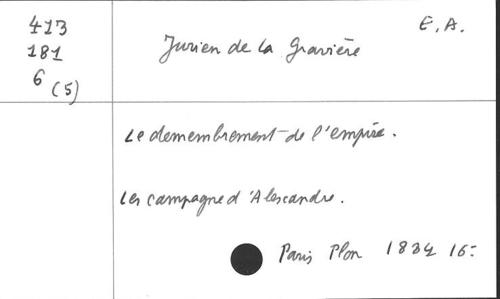 413
181
6 (5)
Jurien de la Gravière
E. A.
Le demembrement de l'empire.
Les campagne d'Alexandre.
Paris Plon 1884 16=